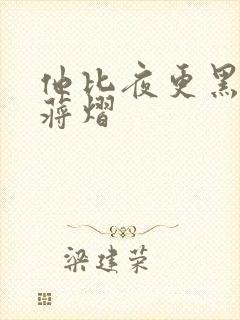 他比夜更黑
蒋熠
梁建荣